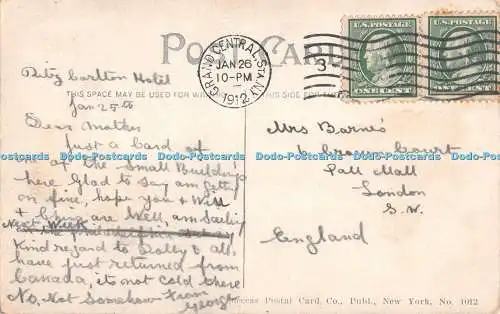 POST CARD
U.S. POSTAGE
ONE CENT
U.S. POSTAGE
ONE CENT
GRAND CENTRAL STA. N.Y.
JAN 26
10-PM
1912
3
THIS SPACE MAY BE USED FOR
THIS SIDE FOR
Ritz Carlton Hotel
Jan 25th
Dear Mother
Just a Card of
of the Small Buildings
here Glad to Say am getting
on fine, hope you & Will
& are Well, am Sailing
Next Week
Kind regard to Dolly & all,
have just returned from
Canada, its not cold there
No, Not Somehow from
George
Mrs Barnes
Court
Pall Mall
London
S.W.
England
Success Postal Card Co., Publ., New York, No. 1012
Dodo-Postcards Dodo-Postcards Dodo-Postcards Dodo-Postcards Dodo-Postcards